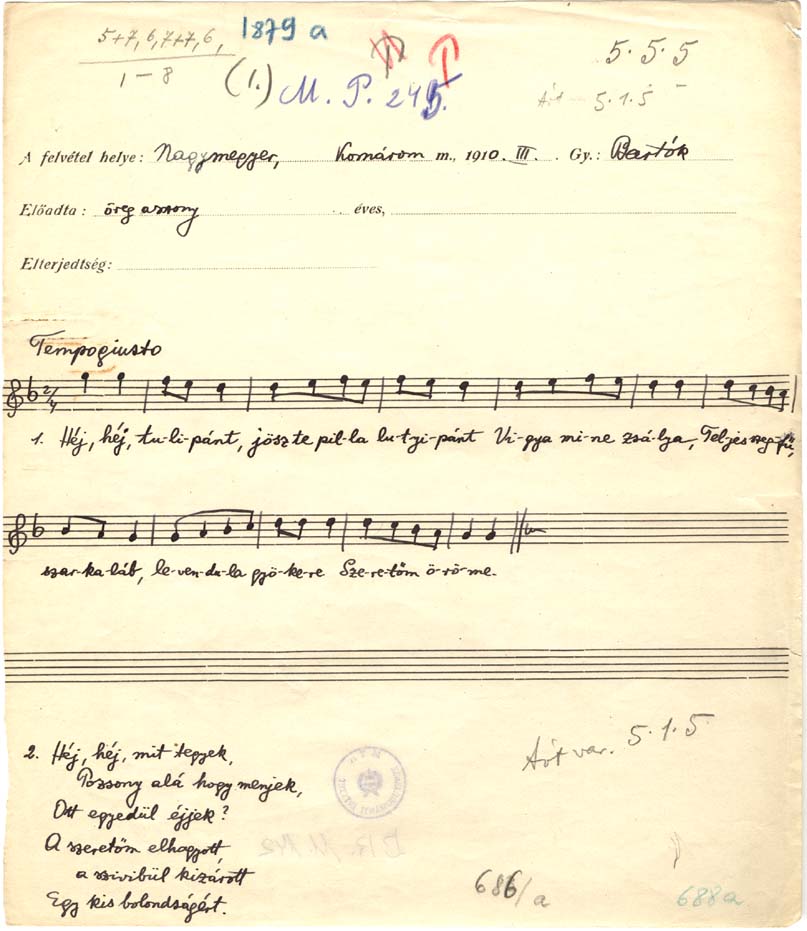 5+7, 6, 7+7, 6,
1 - 8
1879 a
(1.) M. P. 245.
5. 5. 5
5. 1. 5
A felvétel helye: Nagymegyer, Komárom m., 1910. III. Gy.: Bartók
Előadta: öreg asszony éves,
Elterjedtség:
Tempo giusto
2/4
1. Héj, héj, tu-li-pánt, jöszte pil-la lu-tyi-pánt Vi-gya mi-ne zsá-lya, Tel-jes szeg-fű,
szar-ka-láb, le-ven-du-la gyö-ke-re Sze-re-tőm ö-rö-me.
2. Héj, héj, mit tegyek,
Pozsony alá hogy menjek,
Ott egyedül éjjek?
A szeretőm elhagyott,
a szivibül kizárott
Egy kis bolondságért.
var. 5. 1. 5
686/a
688a